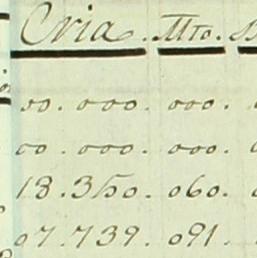 Cria. Mto.
00.000. 000.
00.000. 000.
18.350. 060.
07.739. 091.